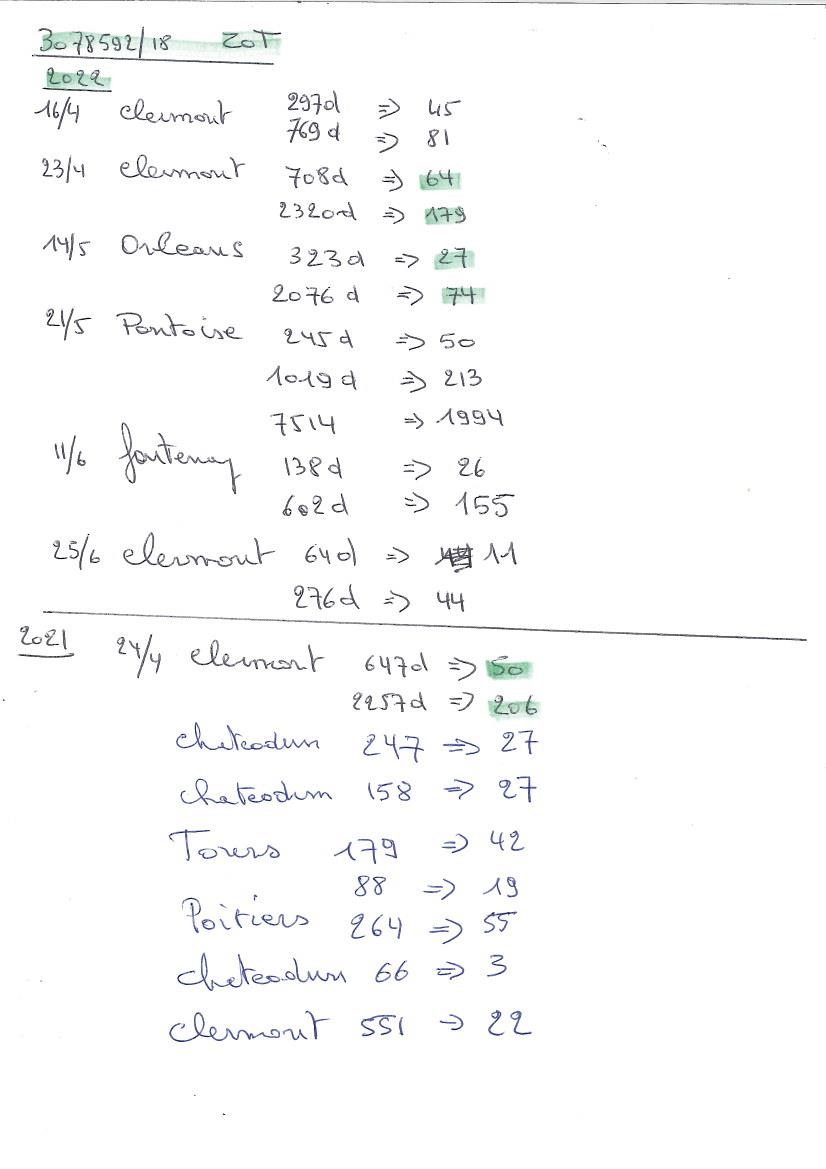 3078592/18 ZOT
2022
16/4 Clermont 297d => 45
769d => 81
23/4 Clermont 708d => 64
2320d => 179
14/5 Orleans 323d => 27
2076d => 74
21/5 Pontoise 245d => 50
1019d => 213
7514 => 1994
11/6 fontenay 138d => 26
602d => 155
25/6 Clermont 64d => 11
276d => 44
2021 24/4 Clermont 647d => 50
2257d => 206
chateodun 247 => 27
chateodun 158 => 27
Tours 179 => 42
88 => 19
Poitiers 264 => 55
chateodun 66 => 3
Clermont 551 => 22